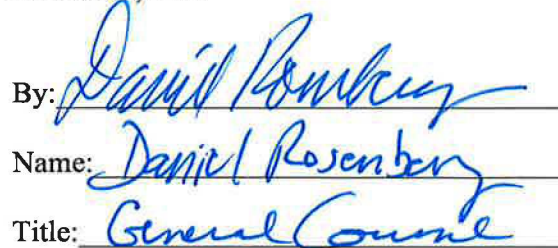 By: Daniel Rosenberg
Name: Daniel Rosenberg
Title: General Counsel